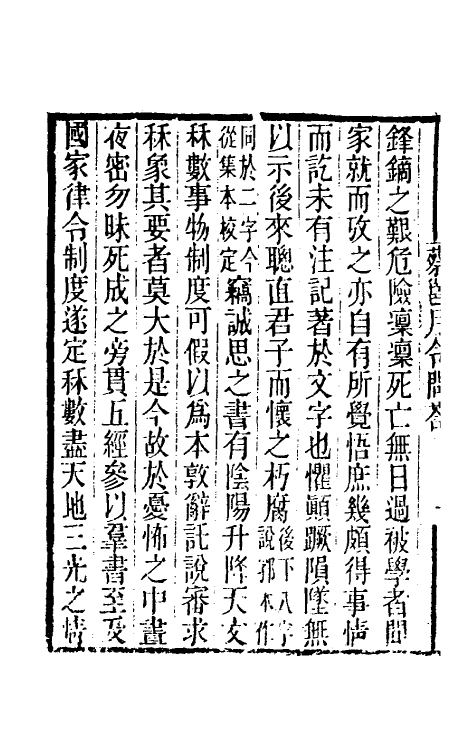 鋒鏑之艱危險凜凜死亡無日過被學者聞
家就而攷之亦自有所覺悟庶幾頗得事情
而訖未有注記著於文字也懼顛蹶隕墜無
以示後來聰直君子而懷之朽腐後下八字說郛本作
同於二字今從集本校定竊誠思之書有陰陽升降天文
秝數事物制度可假以爲本敦辭託說審求
秝象其要者莫大於是今故於憂怖之中晝
夜密勿昧死成之旁貫五經參以羣書至及
國家律令制度遂定秝數盡天地三光之情
蔡邕月令問答